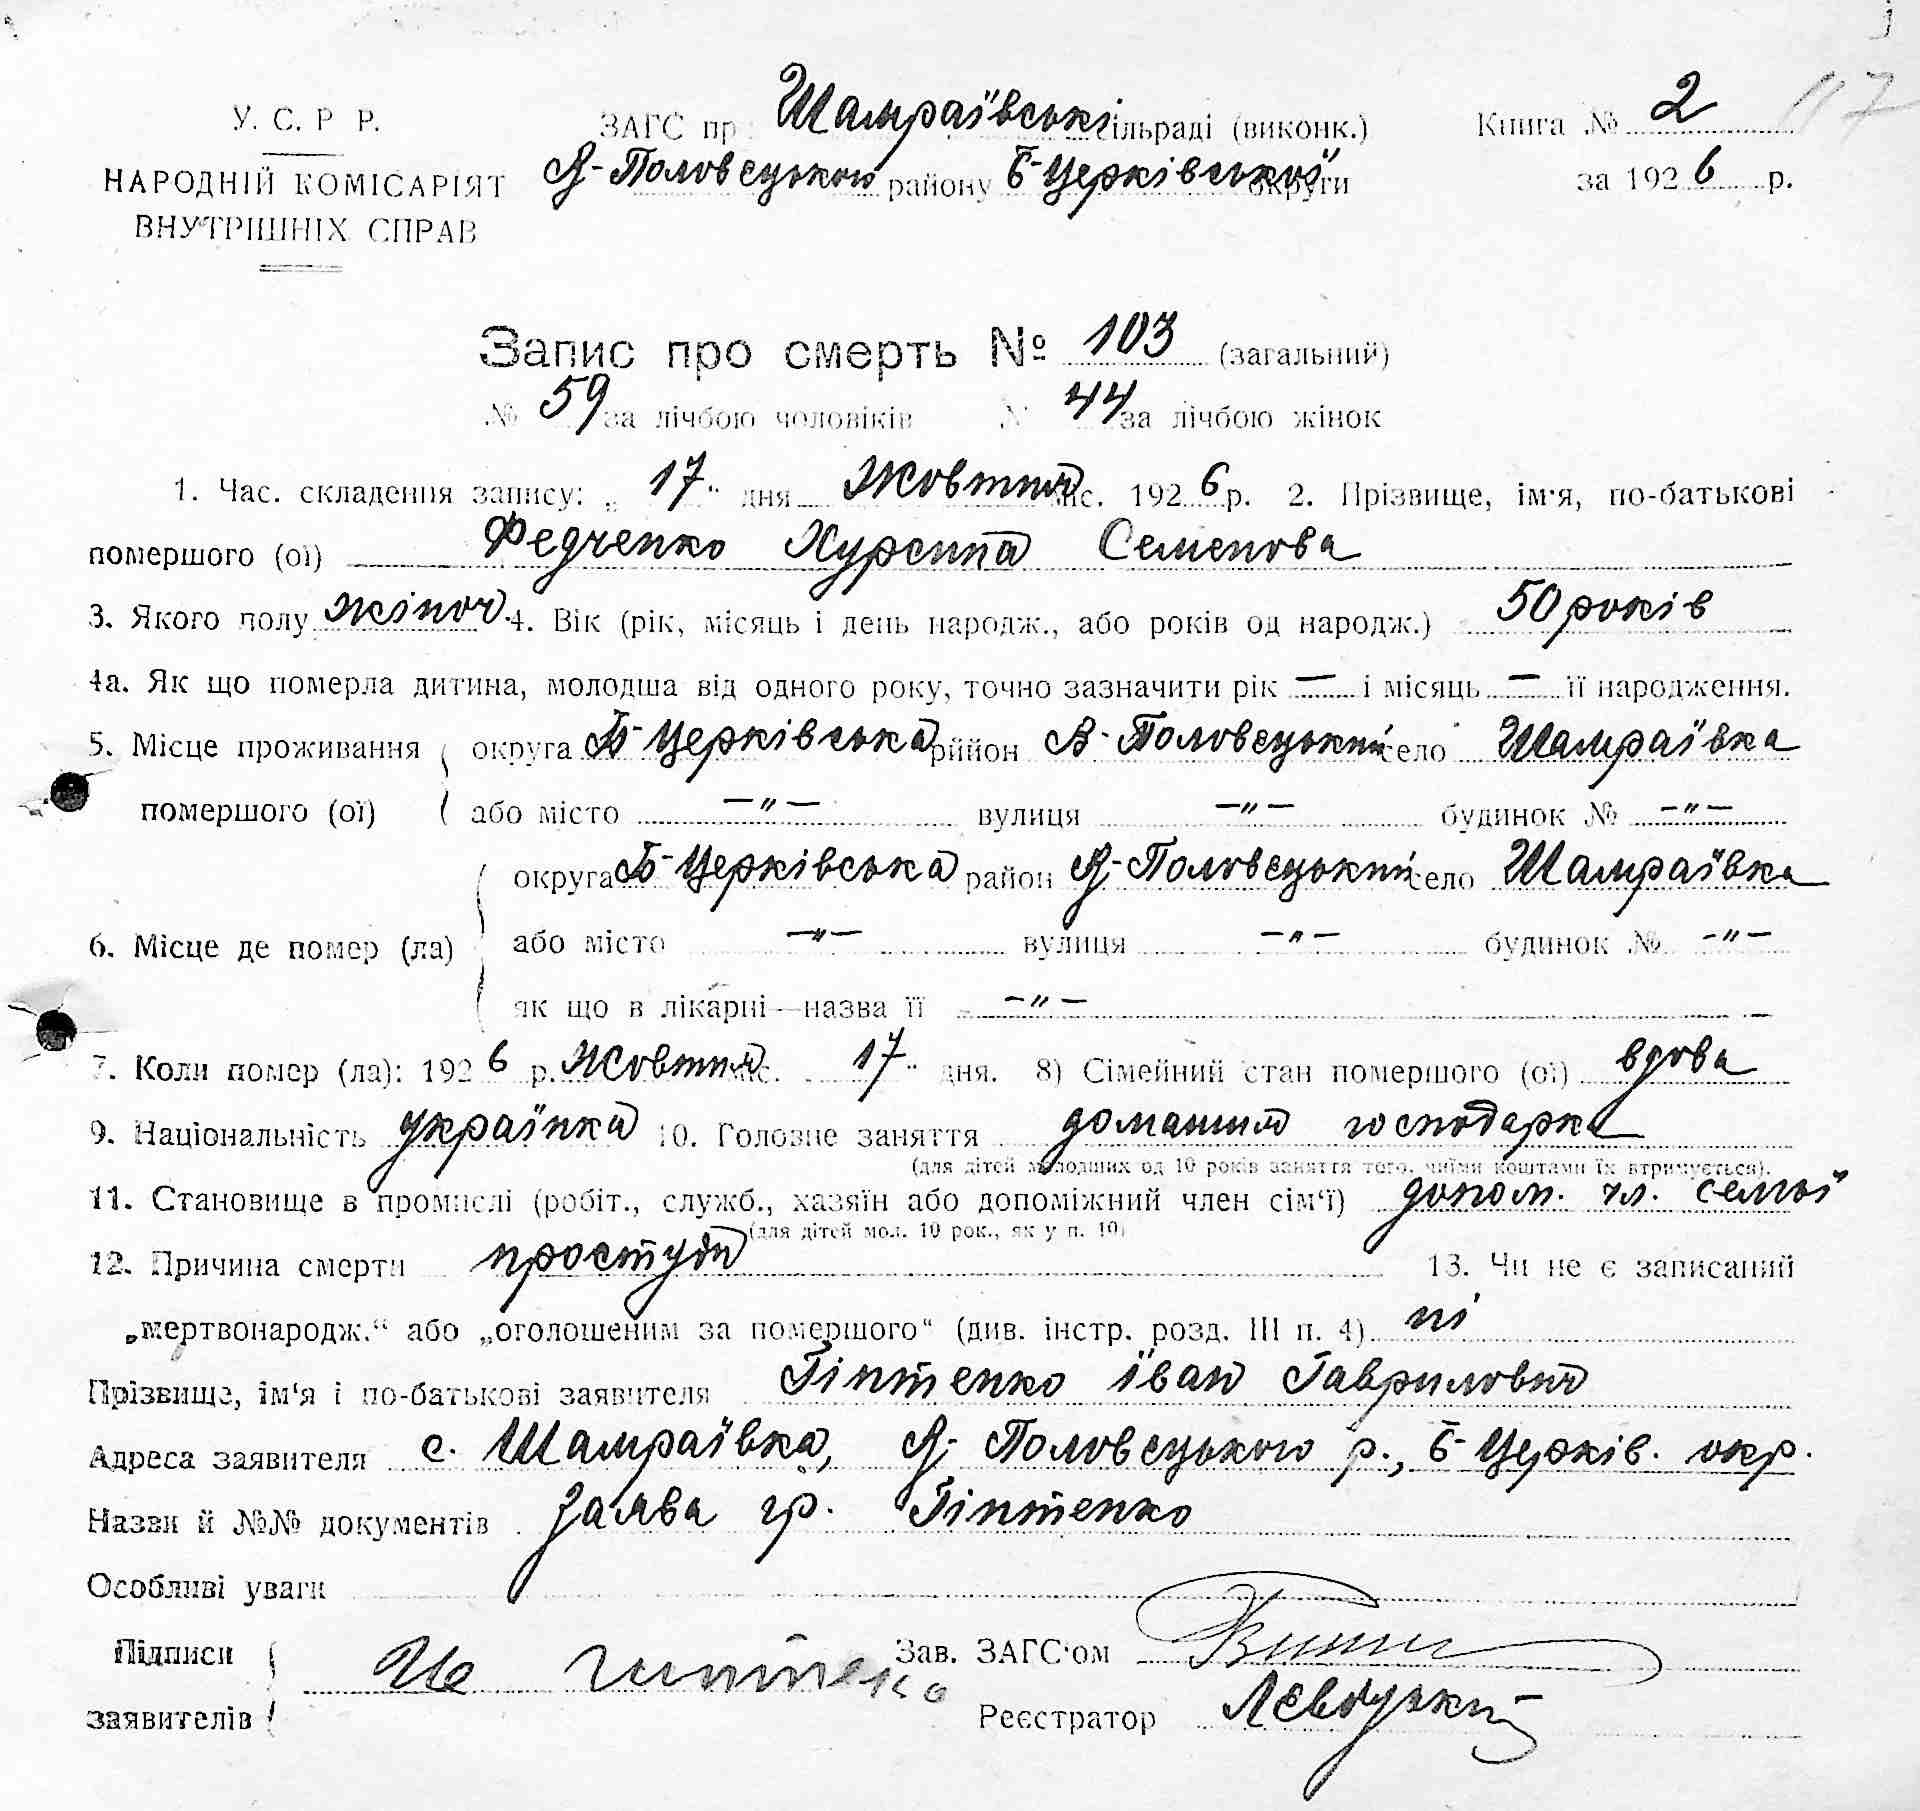 117
У. С. Р Р.
НАРОДНІЙ КОМІСАРІЯТ
ВНУТРІШНІХ СПРАВ
ЗАГС пр Шамраївські ільраді (виконк.)
Я-Половецького району Б-Церківської округи
Книга № 2
за 1926 р.
Запис про смерть № 103 (загальний)
№ 59 за лічбою чоловіків № 44 за лічбою жінок
1. Час. складення запису: „ 17 " дня Жовтня міс. 1926 р. 2. Прізвище, ім'я, по-батькові
помершого (ої) Федченко Хурсина Семенова
3. Якого полу жіноч. 4. Вік (рік, місяць і день народж., або років од народж.) 50 років
4а. Як що померла дитина, молодша від одного року, точно зазначити рік — і місяць — її народження.
5. Місце проживання округа Б-Церківська рййон Я-Половецький село Шамраївка
помершого (ої) або місто —"— вулиця —"— будинок № —"—
округа Б-Церківська район Я-Половецький село Шамраївка
6. Місце де помер (ла) або місто —"— вулиця —"— будинок № —"—
як що в лікарні—назва її —"—
7. Коли помер (ла): 1926 р. Жовтня міс. 17 " дня. 8) Сімейний стан помершого (ої) вдова
9. Національність українка 10. Головне заняття домашня господарка
(для дітей молодших од 10 років заняття того, чиїми коштами їх втримується).
11. Становище в промислі (робіт., служб., хазяїн або допоміжний член сім'ї) допом. чл. семьї
(для дітей мол. 10 рок., як у п. 10)
12. Причина смерти простуда 13. Чи не є записаний
„мертвонародж.“ або „оголошеним за помершого“ (див. інстр. розд. III п. 4) ні
Прізвище, ім'я і по-батькові заявителя Гіптенко Іван Гаврилович
Адреса заявителя с. Шамраївка, Я-Половецького р., Б-Церків. окр.
Назви й №№ документів Заява гр. Гіптенко
Особливі уваги
Підписи
заявителів
Зав. ЗАГС'ом
Реєстратор Лєвіцький